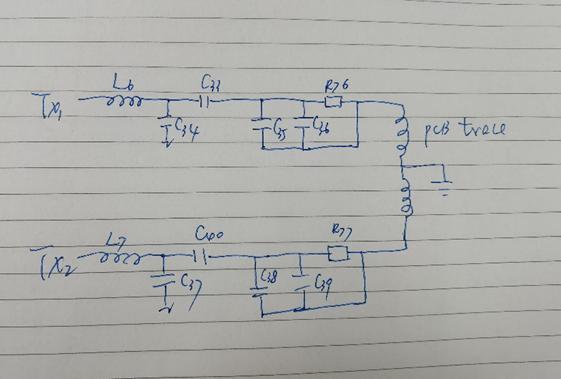 L6
C33
R76
Tx1
C34
C35
C36
pcb trace
L7
C400
R77
Tx2
C37
C38
C39